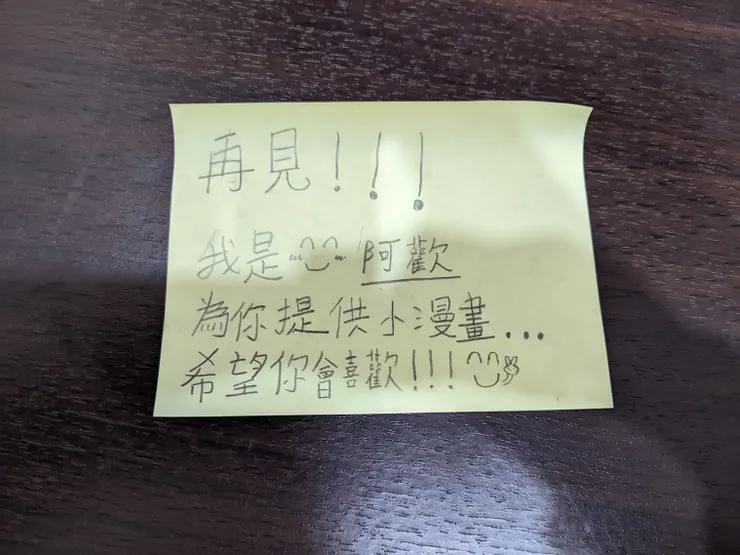 再見!!!
我是 阿歡
為你提供小漫畫...
希望你會喜歡!!!